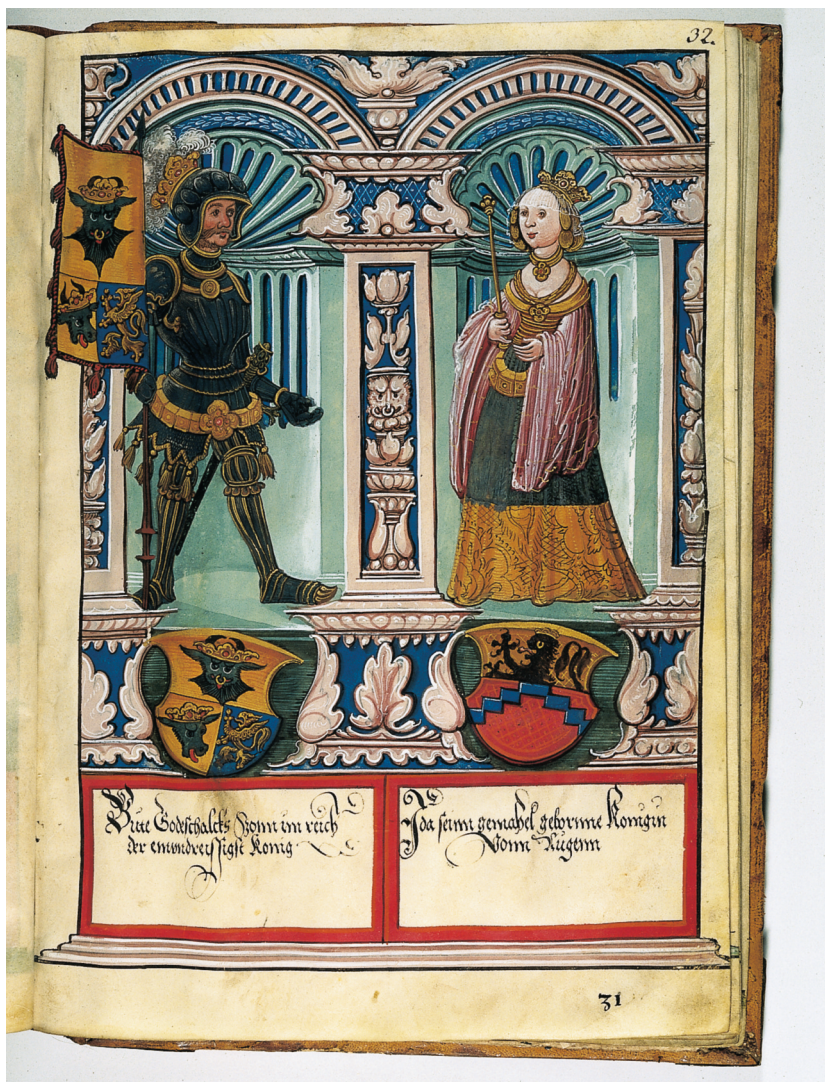 32.
Bute Godeschalcks Sonn im reich
der einunndreissigst Konig
Ida seinn gemahel gebornne Konigin
Vonn Rugenn
31